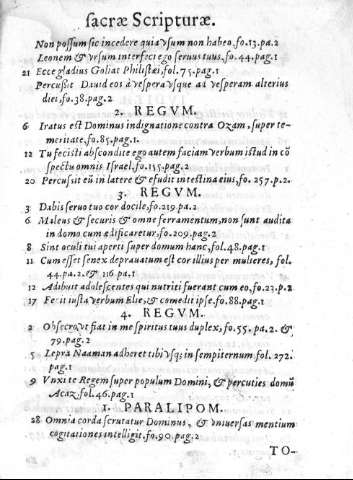 sacræ Scripturæ.
Non possum sic incedere quia vsum non habeo, fo.13.pa.2
Leonem & vrsum interfect ego seruus tuus, fo.44.pag.1
21 Ecce gladius Goliat Philistæi, fol.75.pag.1
Percussit Dauid eos à vespera vsque ad vesperam alterius
diei, fo.38.pag.2
2. REGVM.
6 Iratus est Dominus indignatione contra Ozam, super te-
meritate, fo.85.pag.1.
12 Tu fecisti abscondite ego autem faciam verbum istud in cõ
spectu omnis Israel, fo.155.pag.2
20 Percussit eũ in latere & efudit intestina eius, fo. 257.p.2.
3. REGVM.
3 Dabis seruo tuo cor docile, fo.219.pa.2
6 Maleus & securis & omne ferramentum, non sunt audita
in domo cum ædificaretur, fo.209.pag.2
8 Sint oculi tui aperti super domum hanc, fol.48.pag.1
11 Cum esset senex deprauatum est cor illius per mulieres, fol.
44.pa.2.& 116.pa.1
12 Adibuit adolescentes qui nutriti fuerant cum eo, fo.23.p.2
17 Fecit iusta verbum Elie, & comedit ipse. fo.88.pag.1
4. REGVM.
2 Obsecro vt fiat in me spiritus tuus duplex, fo.55.pa.2. &
79.pag.2
5 Lepra Naaman adheret tibi vsq; in sempiternum fol.272.
pag.1
9 Vnxi te Regem super populum Domini, & percuties domũ
Acaz, fol.46.pag.1
1. PARALIPOM.
28 Omnia corda scrutatur Dominus, & vniuersas mentium
cogitationes intelligit, fo.90.pag.2
TO-